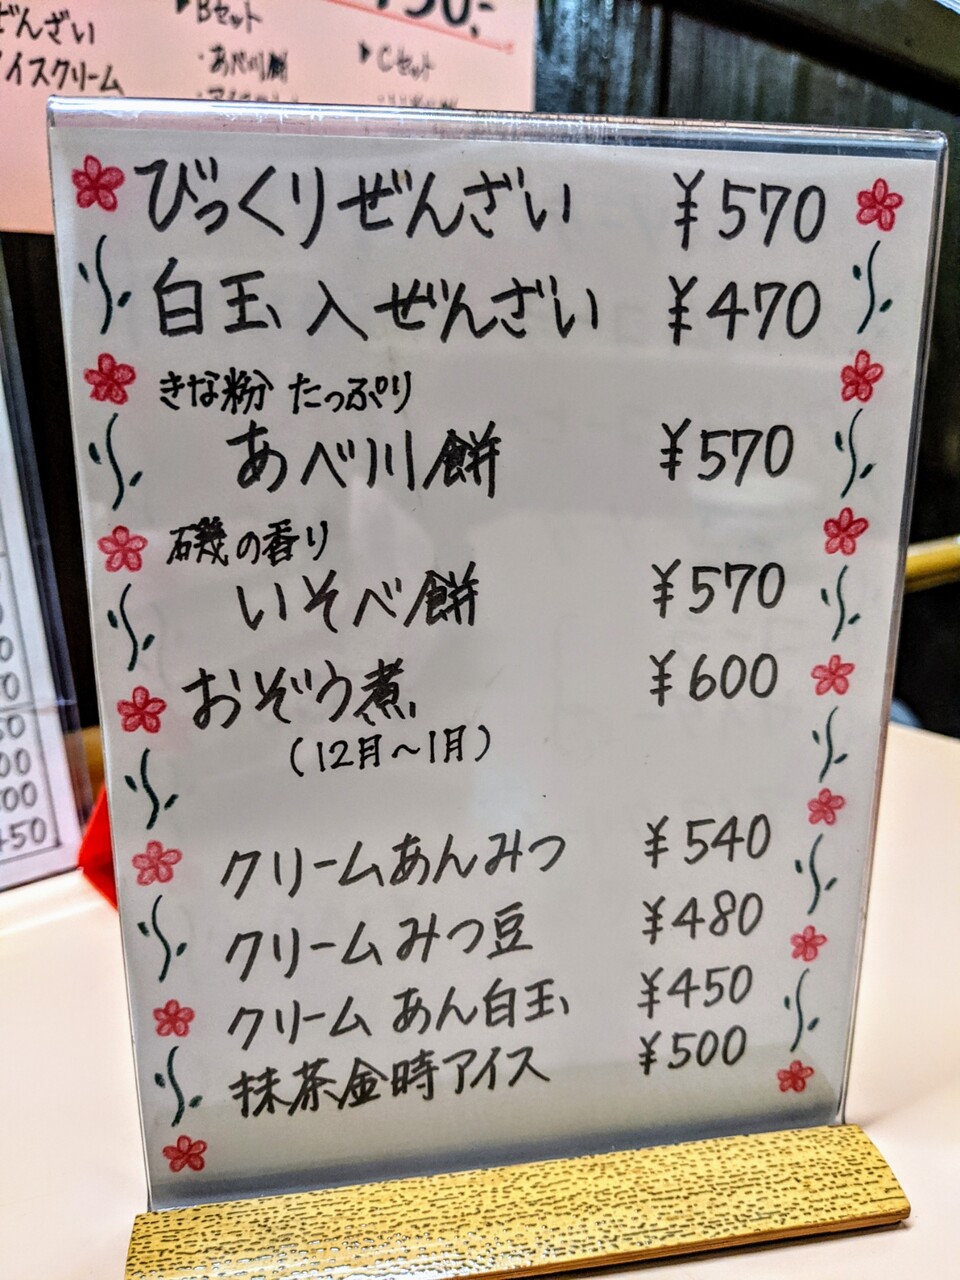 ぜんざい
アイスクリーム
▶Bセット
・あべ川餅
▶Cセット
びっくりぜんざい ¥570
白玉入ぜんざい ¥470
きな粉 たっぷり
あべ川餅 ¥570
磯の香り
いそべ餅 ¥570
おぞう煮 ¥600
(12月~1月)
クリームあんみつ ¥540
クリームみつ豆 ¥480
クリームあん白玉 ¥450
抹茶金時アイス ¥500